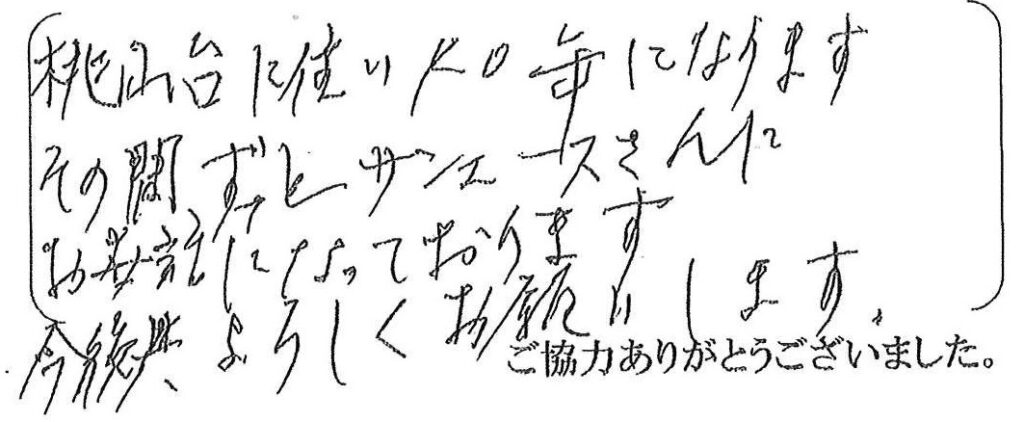 桃山台に住い10年になります
その間ずっとサンエースさんに
お世話になっております
今後共、よろしくお願いします。
ご協力ありがとうございました。